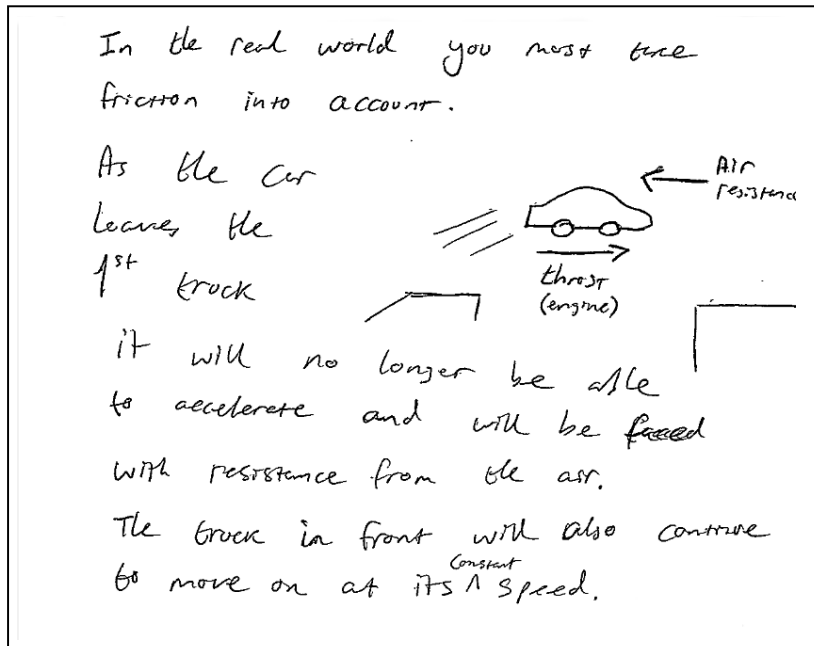 In the real world you must take
friction into account.
As the car
leaves the
1st truck
Air
resistanc
thrust
(engine)
it will no longer be able
to accelerate and will be faced
with resistance from the air.
The truck in front will also continue
to move on at its constant speed.